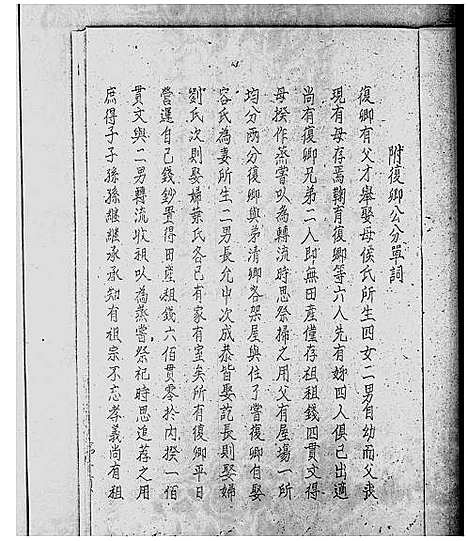 附復卿公分單詞
復卿有父才舉娶母侯氏所生四女二男自幼而父我
現有母存焉鞠育復卿等六人先有姊四人俱已出適
尚有復卿兄弟二人即無田產僅存祖租錢四貫文得
母揆作蒸嘗以為轉流時思祭掃之用父有屋場一所
均分兩分復卿與弟清卿各架屋與住了嘗復卿自娶
容氏為妻所生二男長允中次成泰皆娶訖長則娶婦
劉氏次則娶婦葉氏各已有家有室矣所有復卿平日
營運自己錢鈔置得田產租錢六佰貫零於內揆一佰
貫文與二男轉流收租以為蒸嘗祭祀時思追荐之用
庶得子子孫孫継継承承知有祖宗不忘孝義尚有租